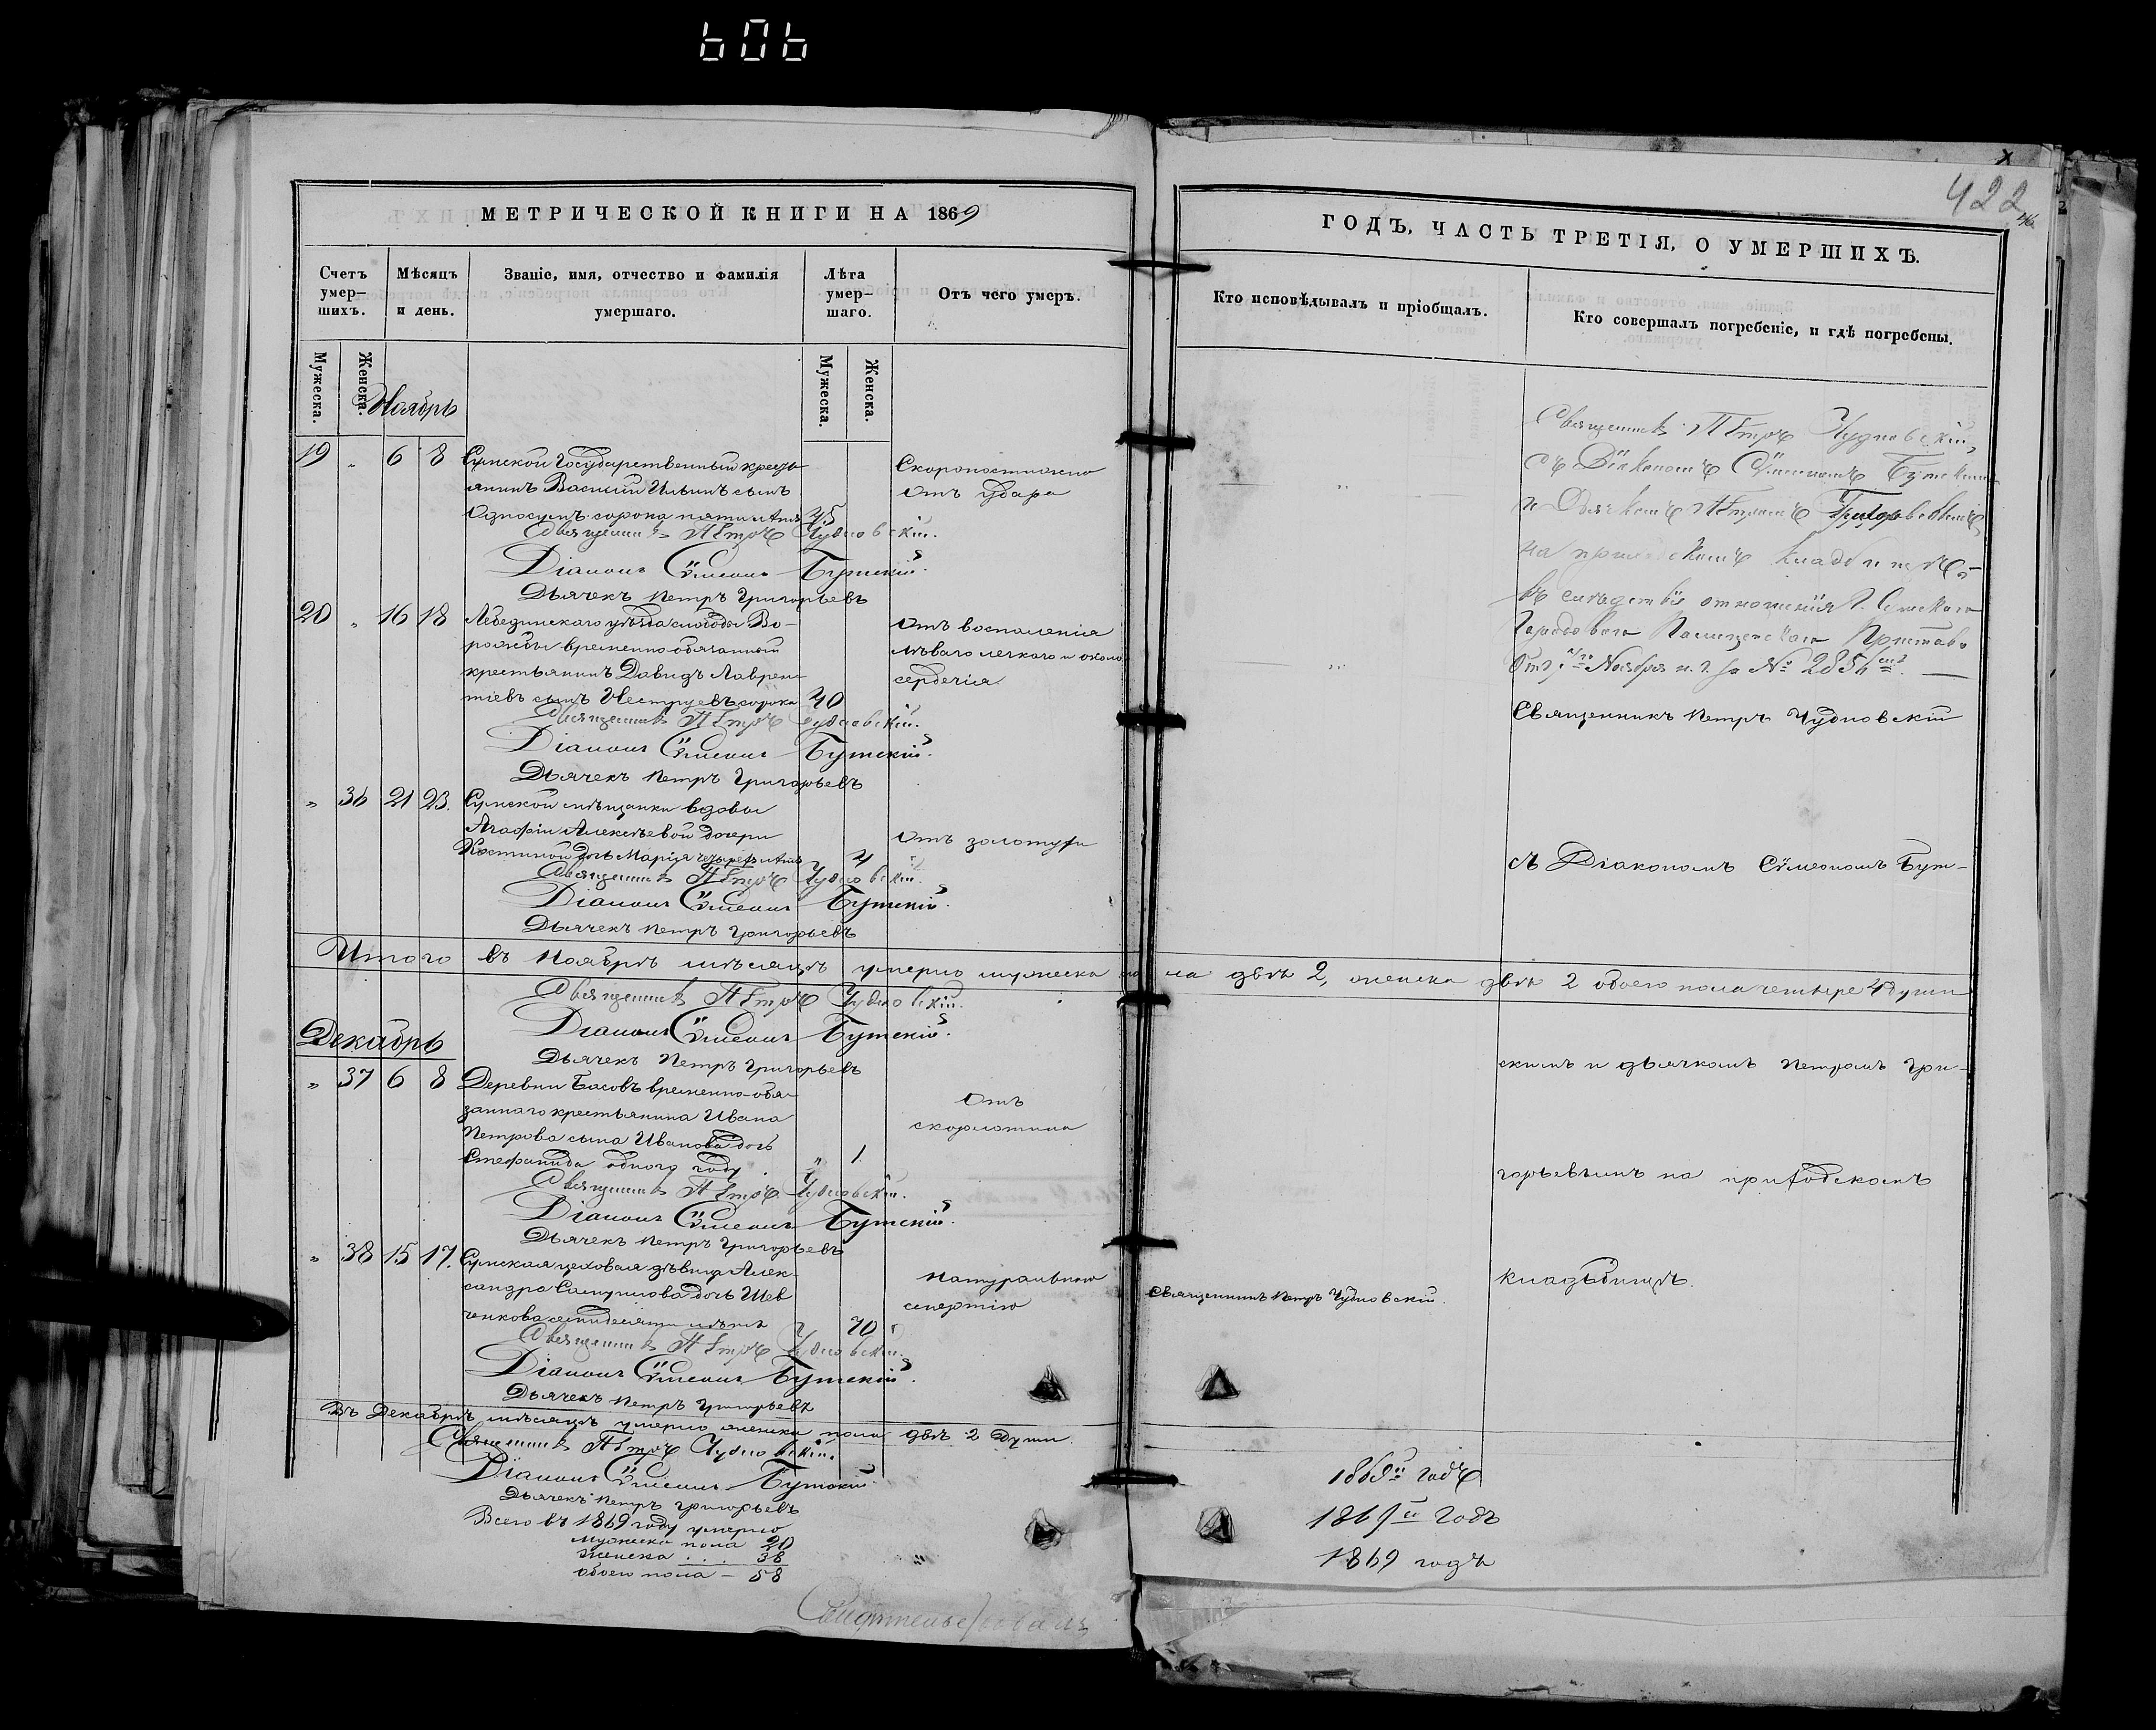 606
422
МЕТРИЧЕСКОЙ КНИГИ НА 1869
ГОДЪ, ЧАСТЬ ТРЕТІЯ, О УМЕРШИХЪ.
Счетъ умер-шихъ.
Мѣсяцъ и день.
Званіе, имя, отчество и фамилія умершаго.
Лѣта умер-шаго.
Отъ чего умеръ.
Кто исповѣдывалъ и пріобщалъ.
Кто совершалъ погребеніе, и гдѣ погребены.
Мужеска.
Женска.
Мужеска.
Женска.
Ноябрь
19 " 6 8 Сумской Государственный кресть-
янинъ Василій Ильинъ сынъ
Односумъ сорока пяти лѣтъ 45
Скоропостижно
отъ удара
Священникъ Петръ Чудновскій.
Діаконъ Сѵмеонъ Бутскій.
Дьячекъ Петръ Григорьевъ
20 " 16 18 Лебединскаго уѣзда слободы Во-
рожбы временно-обязанный
крестьянинъ Давидъ Лаврен-
тіевъ сынъ сорока 40
Отъ воспаленія
лѣваго легкаго и около
сердечія
Священникъ Петръ Чудновскій.
Діаконъ Сѵмеонъ Бутскій.
Дьячекъ Петръ Григорьевъ
" 36 21 23. Сумской мѣщанки вдовы
Агафіи Алексѣевой дочери
Костиной дочь Марія четырехъ лѣтъ 4
Отъ золотухи
Священникъ Петръ Чудновскій.
Діаконъ Сѵмеонъ Бутскій.
Дьячекъ Петръ Григорьевъ
Итого въ Ноябрѣ мѣсяцѣ умерло мужеска пола двѣ 2, женска двѣ 2 обоего пола четыре 4 души
Священникъ Петръ Чудновскій.
Діаконъ Сѵмеонъ Бутскій.
Дьячекъ Петръ Григорьевъ
Декабрь
" 37 6 8 Деревни Басовъ временно-обя-
заннаго крестьянина Ивана
Петрова сына Иванова дочь
Стефанида одного году " 1
Отъ
скорлотина
Священникъ Петръ Чудновскій.
Діаконъ Сѵмеонъ Бутскій.
Дьячекъ Петръ Григорьевъ
" 38 15 17. Сумская цеховая дѣвица Алек-
сандра Самуилова дочь Шев
ченкова семидесяти лѣтъ 70
Натуральною
смертію
Священникъ Петръ Чудновскій.
Священникъ Петръ Чудновскій.
Діаконъ Сѵмеонъ Бутскій.
Дьячекъ Петръ Григорьевъ
Въ Декабрѣ мѣсяцѣ умерло женска пола двѣ 2 души.
Священникъ Петръ Чудновскій.
Діаконъ Сѵмеонъ Бутскій.
Дьячекъ Петръ Григорьевъ
Всего въ 1869 году умерло
мужеска пола 20
женска . . . 38
обоего пола — 58
Свидѣтельствовалъ
Священникъ Петръ Чудновскій,
съ Діакономъ Сѵмеономъ Бутскимъ
и Дьячкомъ Петромъ Григорьевымъ,
на приходскомъ кладбищѣ,-
въ слѣдствіе отношенія Г. Сумскаго
Городоваго Полицейскаго Пристава
отъ Ноября с. г. за №
Священникъ Петръ Чудновскій
съ Діакономъ Сѵмеономъ Бут-
скимъ и дьячкомъ Петромъ Гри-
горьевымъ на приходскомъ
кладбищѣ.
1869й годъ
1869й годъ
1869 годъ